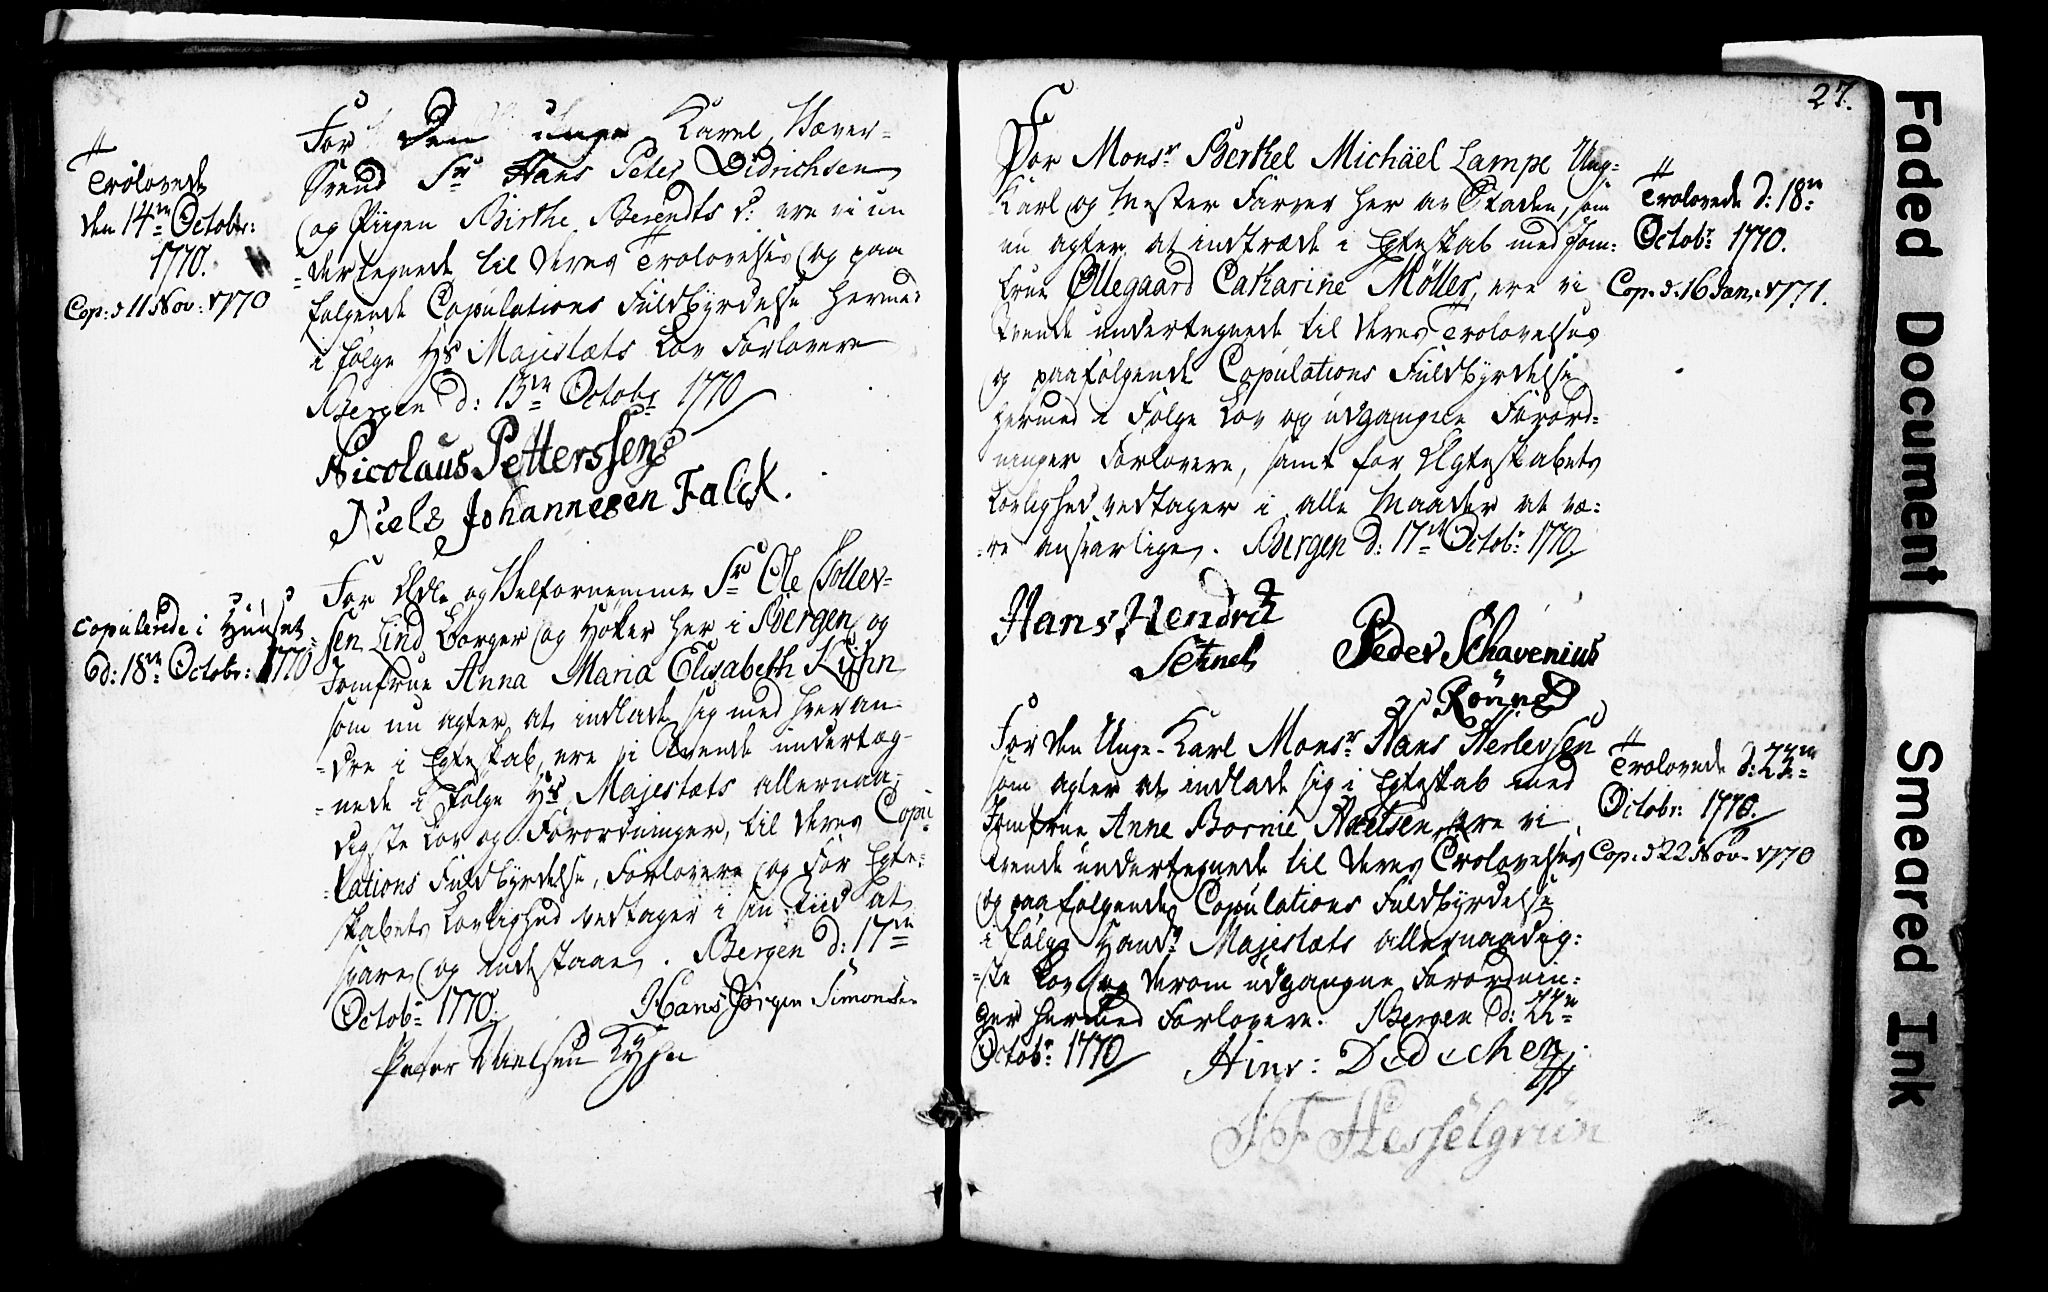 #
Trolovede
den 14de Octobr:
1770.
Cop: d 11 Nov: 1770
For Den unge Karel Hæver=
Svend Sr Hans Peter Didrichsen
og Piigen Birthe Berendts D: ere vi un
=dertegnede til deres Trolovelses og paa
følgende Copulations Fuldbyrdelse hermed
i følge Hs Majestæts Lov Forlovere
Bergen d: 13de Octobr 1770
Nicolaus Petterssen
Niels Johannesen Falck.
Copulerede i Huuset
d: 18de Octobr: 1770
For Ædle og Velfornemme Sr Ole Tollev=
sen Lind Borger og Høker her i Bergen og
Jomfrue Anna Maria Elisabeth Kyhn
som nu agter at indlade sig med hveran
=dre i Egteskab, ere vi tvende underteg-
=nede i Følge Hs Majestæts allernaa=
digste Lov og Forordninger, til deres Copu
=lations Fuldbyrdelse, Forlovere og for Egte=
skabets Lovlighed vedtager i sin Tiid at
svare og indestaae. Bergen d: 17de
Octobr 1770.
Hans Jørgen Simonsen
Peter Nielsen Kyhn
27.
For Monsr Berthel Michäel Lampe Ung=
Karl og Mester Farver her av Staden, som
nu agter at indtræde i Egteskab med Jom=
frue Øllegaard Catharine Møller, ere vi
tvende undertegnede til deres Trolovelses
og paafølgende Copulations Fuldbyrdelse
hermed i Følge Lov og udgangne Forord=
ninger Forlovere, samt for Ægteskabets
Lovlighed vedtager i alle Maader at væ=
=re ansvarlige. Bergen d: 17de Octobr: 1770.
#
Trolovede d: 18de
Octobr 1770.
Cop: d: 16 Jan: 1771.
Hans Hendrik
Peder Schavenius
Rönne
For den Unge-Karl Monsr Hans Herlevsen
som agter at indlade sig i Egteskab med
Jomfrue Anne Bornie Axelsen, ere vi
tvende undertegnede til deres Trolovelses
og paafølgende Copulations Fuldbyrdelse
i følge Hands Majestæts allernaadig=
=ste Lov og derom udgangne Forordnin=
ger hermed Forlovere. Bergen d: 22de
Octobr 1770
#
Trolovede d: 22de
Octobr: 1770.
Cop: d 22 Nov: 1770
Hinr: Dedechen
J F Hesselgrün
Faded Document
Smeared Ink